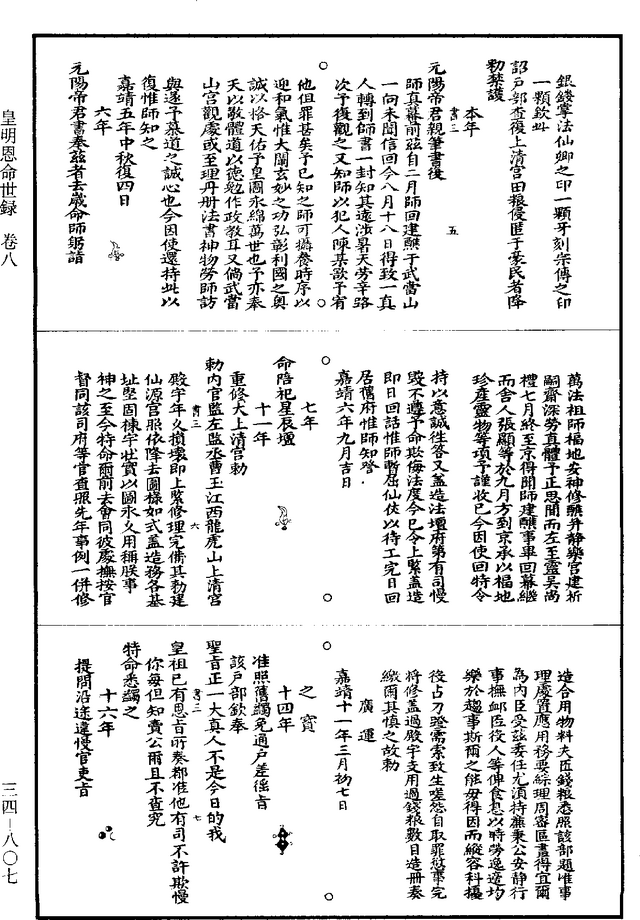 皇明恩命世録 卷八
三四－八〇七
銀鏤掌法仙卿之印一顆牙刻宗傳之印
一顆欽此
詔戶部查復上清宮田粮侵匿于豪民者降
勑禁護
本年
元陽帝君親筆書復
書三 五
師真幕前茲自二月師回建醮于武當山
一向未聞信回今八月十八日得致一真
人轉到師書一封知其遠涉暑天勞辛路
次予復觀之又知師以犯人陳某欲予宥
他但罪甚矣予已知之師可攝養時序以
迎和氣惟大闡玄妙之功弘彰利國之奧
誠以恪天佑予皇圖永綿萬世也予亦奉
天以敬體道以德勉作政教耳又倘武當
山宮觀處或至理丹册法書神物勞師訪
與遂予慕道之誠心也今因使還持此以
復惟師知之
嘉靖五年中秋復四日
六年
元陽帝君書奉茲者去歲命師躬詣
萬法祖師福地安神修醮并靜樂宮建祈
嗣齋深勞真體予正思間而左至靈吳尚
禮七月終至京得聞師建醮事畢回幕繼
而舍人張顯等於九月方到京承以福地
珍產靈物等項予謹收已今因使回特令
持以意誠徃答又盖造法壇府第有司慢
毀不遵予命欺侮法度今已令上緊盖造
即日回話惟師暫屈仙仗以待工完日回
居舊府惟師知登
嘉靖六年九月吉日
七年
命陪祀星辰壇
十一年
重修大上清宮勑
勑內官監左監丞曹玉江西龍虎山上清宮
書三 六
殿宇年久損壞即上緊修理完備其勑建
仙源宮照依降去圖樣如式盖造務各基
址堅固棟宇壯實以圖永久用稱朕事
神之至今特命爾前去會同彼處撫按官
督同該司府等官查照先年事例一併修
造合用物料夫匠錢粮悉照該部題惟事
理處置應用務要綜理周密區畫得宜爾
為內臣受茲委任尤湏持廉秉公安靜行
事撫䘏匠役人等俾食息以時勞逸適均
樂於趨事斯爾之能毋得因而縱容科擾
役占刁蹬需索致生嗟怨自取罪愆事完
將修盖過殿宇支用過錢粮數目造册奏
繳爾其慎之故勑
廣運
嘉靖十一年三月初七日
之寶
十四年
准照舊蠲免通戶差徭旨
該戶部欽奉
聖旨正一大真人不是今日的我
書三 七
皇祖已有恩旨所奏都准他有司不許欺慢
你每但知賣公爾且不查究
特命悉蠲之
十六年
提問沿途違慢官吏旨